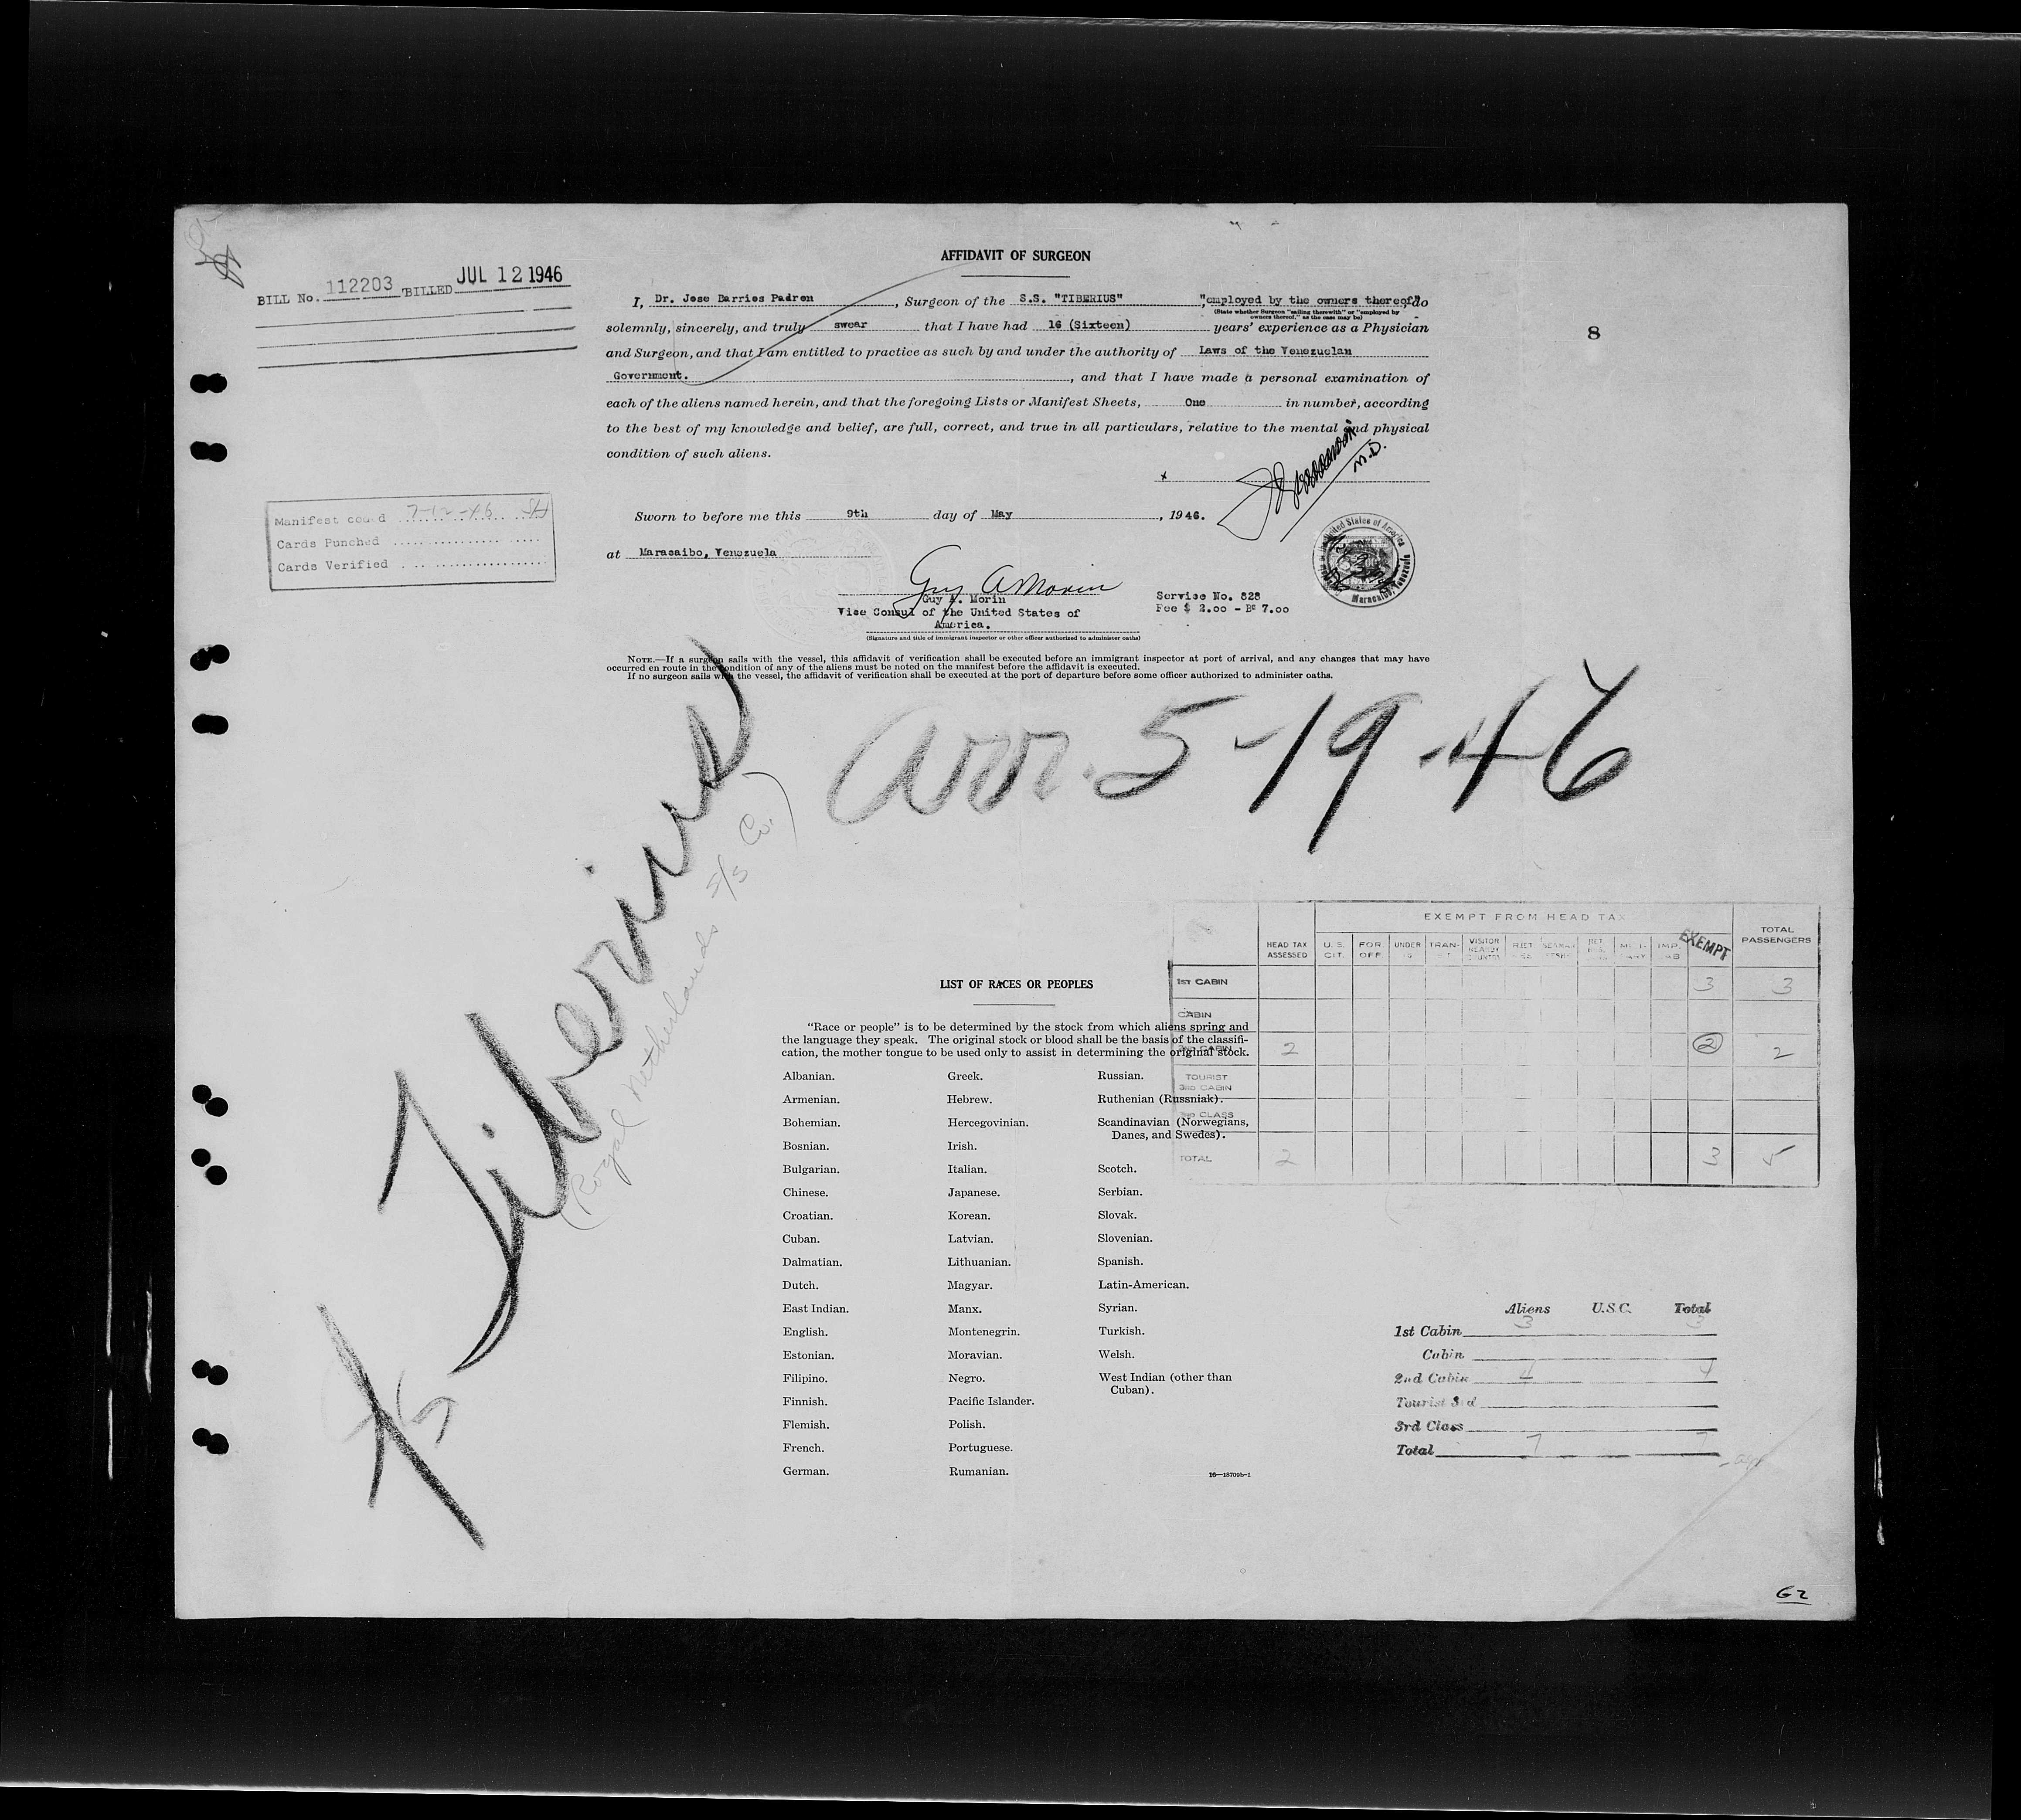 BILL No. 112203 BILLED JUL 12 1946
AFFIDAVIT OF SURGEON
I, Dr. Jose Barrios Padron, Surgeon of the S.S. "TIBERIUS" "employed by the owners thereof," do
(State whether Surgeon "sailing therewith" or "employed by
owners thereof," as the case may be)
solemnly, sincerely, and truly swear that I have had 16 (Sixteen) years' experience as a Physician
and Surgeon, and that I am entitled to practice as such by and under the authority of Laws of the Venezuelan
Government. , and that I have made a personal examination of
each of the aliens named herein, and that the foregoing Lists or Manifest Sheets, One in number, according
to the best of my knowledge and belief, are full, correct, and true in all particulars, relative to the mental and physical
condition of such aliens.
8
x
M.D.
Manifest co d 7-12-46
Cards Punched
Cards Verified
Sworn to before me this 9th day of May, 1946.
at Maracaibo, Venezuela
Guy A Morin
Guy A. Morin
Vice Consul of the United States of
America.
(Signature and title of immigrant inspector or other officer authorized to administer oaths)
Service No. 828
Fee $ 2.00 - Bs 7.00
United States of America
Maracaibo, Venezuela
NOTE.—If a surgeon sails with the vessel, this affidavit of verification shall be executed before an immigrant inspector at port of arrival, and any changes that may have
occurred en route in the condition of any of the aliens must be noted on the manifest before the affidavit is executed.
If no surgeon sails with the vessel, the affidavit of verification shall be executed at the port of departure before some officer authorized to administer oaths.
arr. 5-19-46
Tiberius
(Royal Netherlands S/S Co.)
EXEMPT FROM HEAD TAX
HEAD TAX ASSESSED U. S. CIT. FOR. OFF. UNDER 16 TRAN- VISITOR NEARBY COUNTRY EXEMPT TOTAL PASSENGERS
1ST CABIN 3 3
CABIN
2 2 2
TOURIST
3RD CABIN
CLASS
TOTAL 2 3 5
LIST OF RACES OR PEOPLES
"Race or people" is to be determined by the stock from which aliens spring and
the language they speak. The original stock or blood shall be the basis of the classifi-
cation, the mother tongue to be used only to assist in determining the original stock.
Albanian. Greek. Russian.
Armenian. Hebrew. Ruthenian (Russniak).
Bohemian. Hercegovinian. Scandinavian (Norwegians,
Danes, and Swedes).
Bosnian. Irish.
Bulgarian. Italian. Scotch.
Chinese. Japanese. Serbian.
Croatian. Korean. Slovak.
Cuban. Latvian. Slovenian.
Dalmatian. Lithuanian. Spanish.
Dutch. Magyar. Latin-American.
East Indian. Manx. Syrian.
English. Montenegrin. Turkish.
Estonian. Moravian. Welsh.
Filipino. Negro. West Indian (other than
Cuban).
Finnish. Pacific Islander.
Flemish. Polish.
French. Portuguese.
German. Rumanian.
16—18709b-1
Aliens U.S.C. Total
1st Cabin 3 3
Cabin
2nd Cabin 4 4
Tourist 3rd
3rd Class
Total 7 7
62